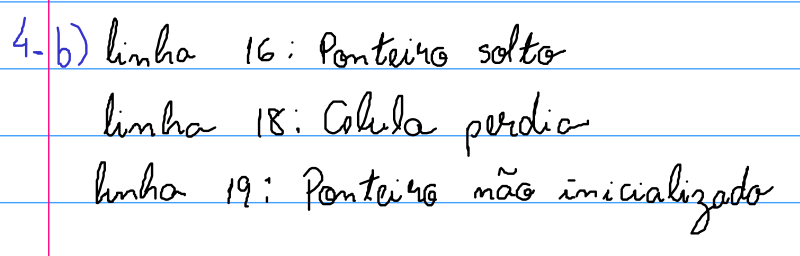 4-b) linha 16: Ponteiro solto
linha 18: Celula perdia
linha 19: Ponteiro não inicializado